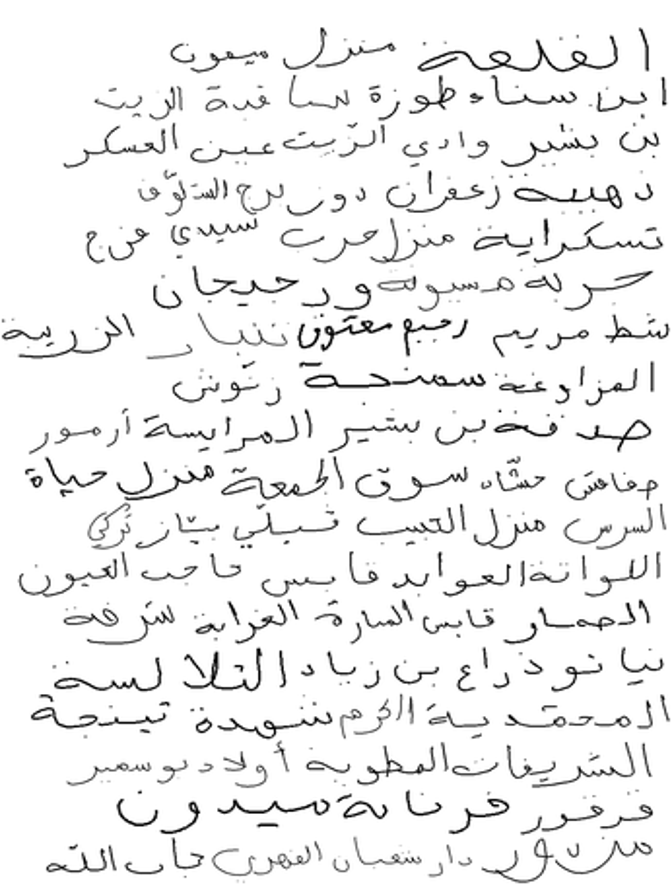 القلعة منزل ميمون
ابن سناء طوزة ساقية الزيت
بن بشير وادي الزيت عين العسكر
ذهيبة زعفران دون برج الستلوف
تسكراية منزل حرب سيدي فرج
حربة مسيوتة ودحيجان
شط مريم رجيم معتوق نبار الزريبة
المزاوغة سمنجة زنوش
صدقة بن بشير المرايسة أرمور
صفاقس حشاد سوق الجمعة منزل حياة
السرس منزل الحبيب ڨبلي بياز تركي
اللواتة العوابد قابس حاجب العيون
الحصار قابس المنارة الغرابة شرفة
نيانو ذراع بن زياد الثلالسة
المحمدية الكرم شهدة تينجة
الشريفات المطوية أولاد بوسمير
قرقور فرنانة سيدون
دار شعبان الفهري جاب الله